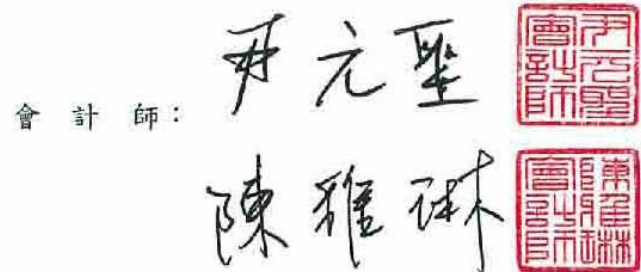 會計師：
尹元聖
尹元聖會計師
陳雅琳
陳雅琳會計師